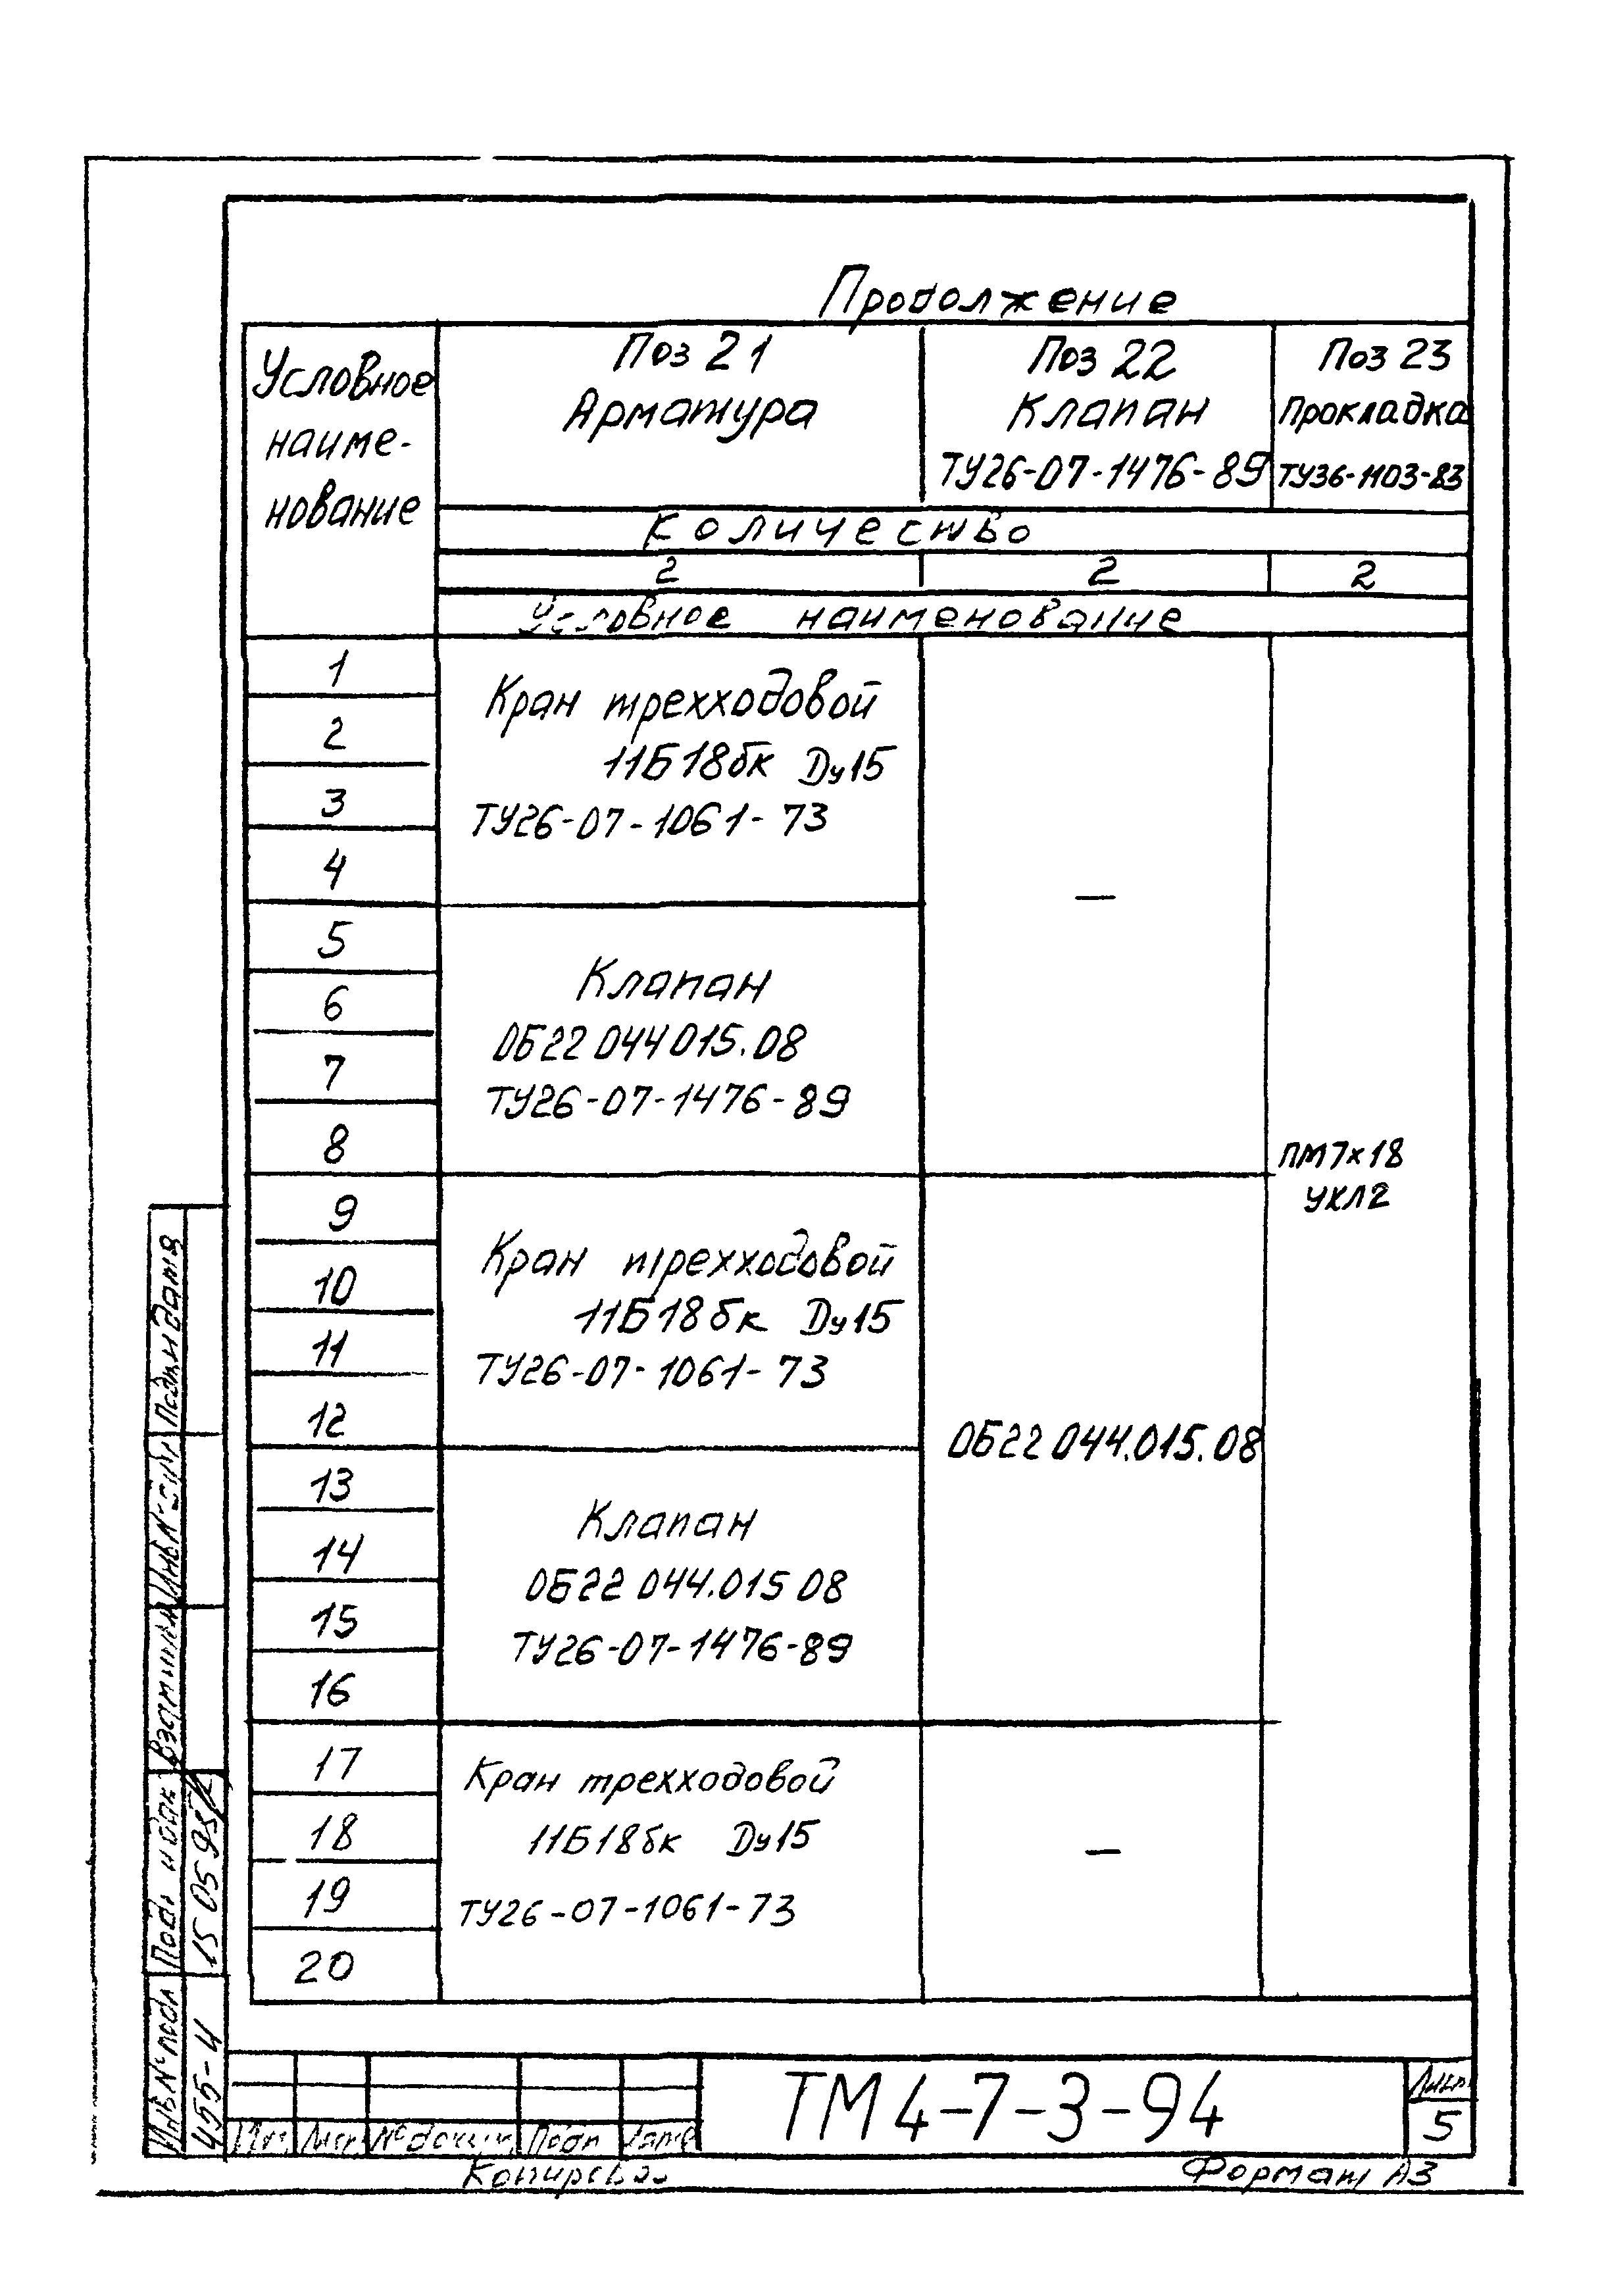 Продолжение
Условное
наиме-
нование
Поз 21
Арматура
Поз 22
Клапан
ТУ26-07-1476-89
Поз 23
Прокладка
ТУ36-1103-83
Количество
2 2 2
Условное наименование
1
2
3
4
Кран трехходовой
11Б18бк Ду15
ТУ26-07-1061-73
5
6
7
8
Клапан
ОБ22 044 015.08
ТУ26-07-1476-89
—
9
10
11
12
Кран трехходовой
11Б18бк Ду15
ТУ26-07-1061-73
13
14
15
16
Клапан
ОБ22 044.015 08
ТУ26-07-1476-89
ОБ22 044.015.08
17
18
19
20
Кран трехходовой
11Б18бк Ду15
ТУ26-07-1061-73
—
ПМ7х18
УХЛ2
Подп и дата
Взам инв
Подп и дата
15 05 95
Инв N° подл
455-4
Лист N° докум Подп Дата
ТМ4-7-3-94
Лист
5
Копировал
Формат А3